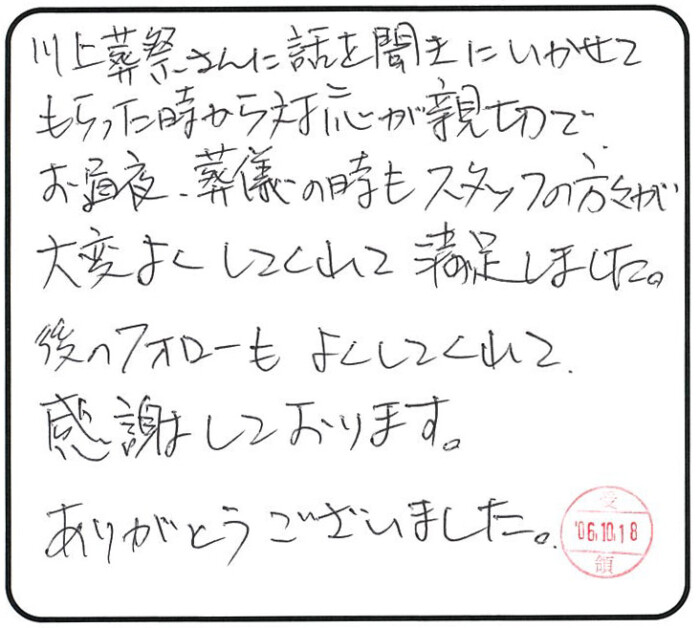 川上葬祭さんに話を聞きにいかせて
もらった時から対応が親切で
お通夜、葬儀の時もスタッフの方々が
大変よくしてくれて満足しました。
後のフォローもよくしてくれて、
感謝しております。
ありがとうございました。
受
'06.10.18
領